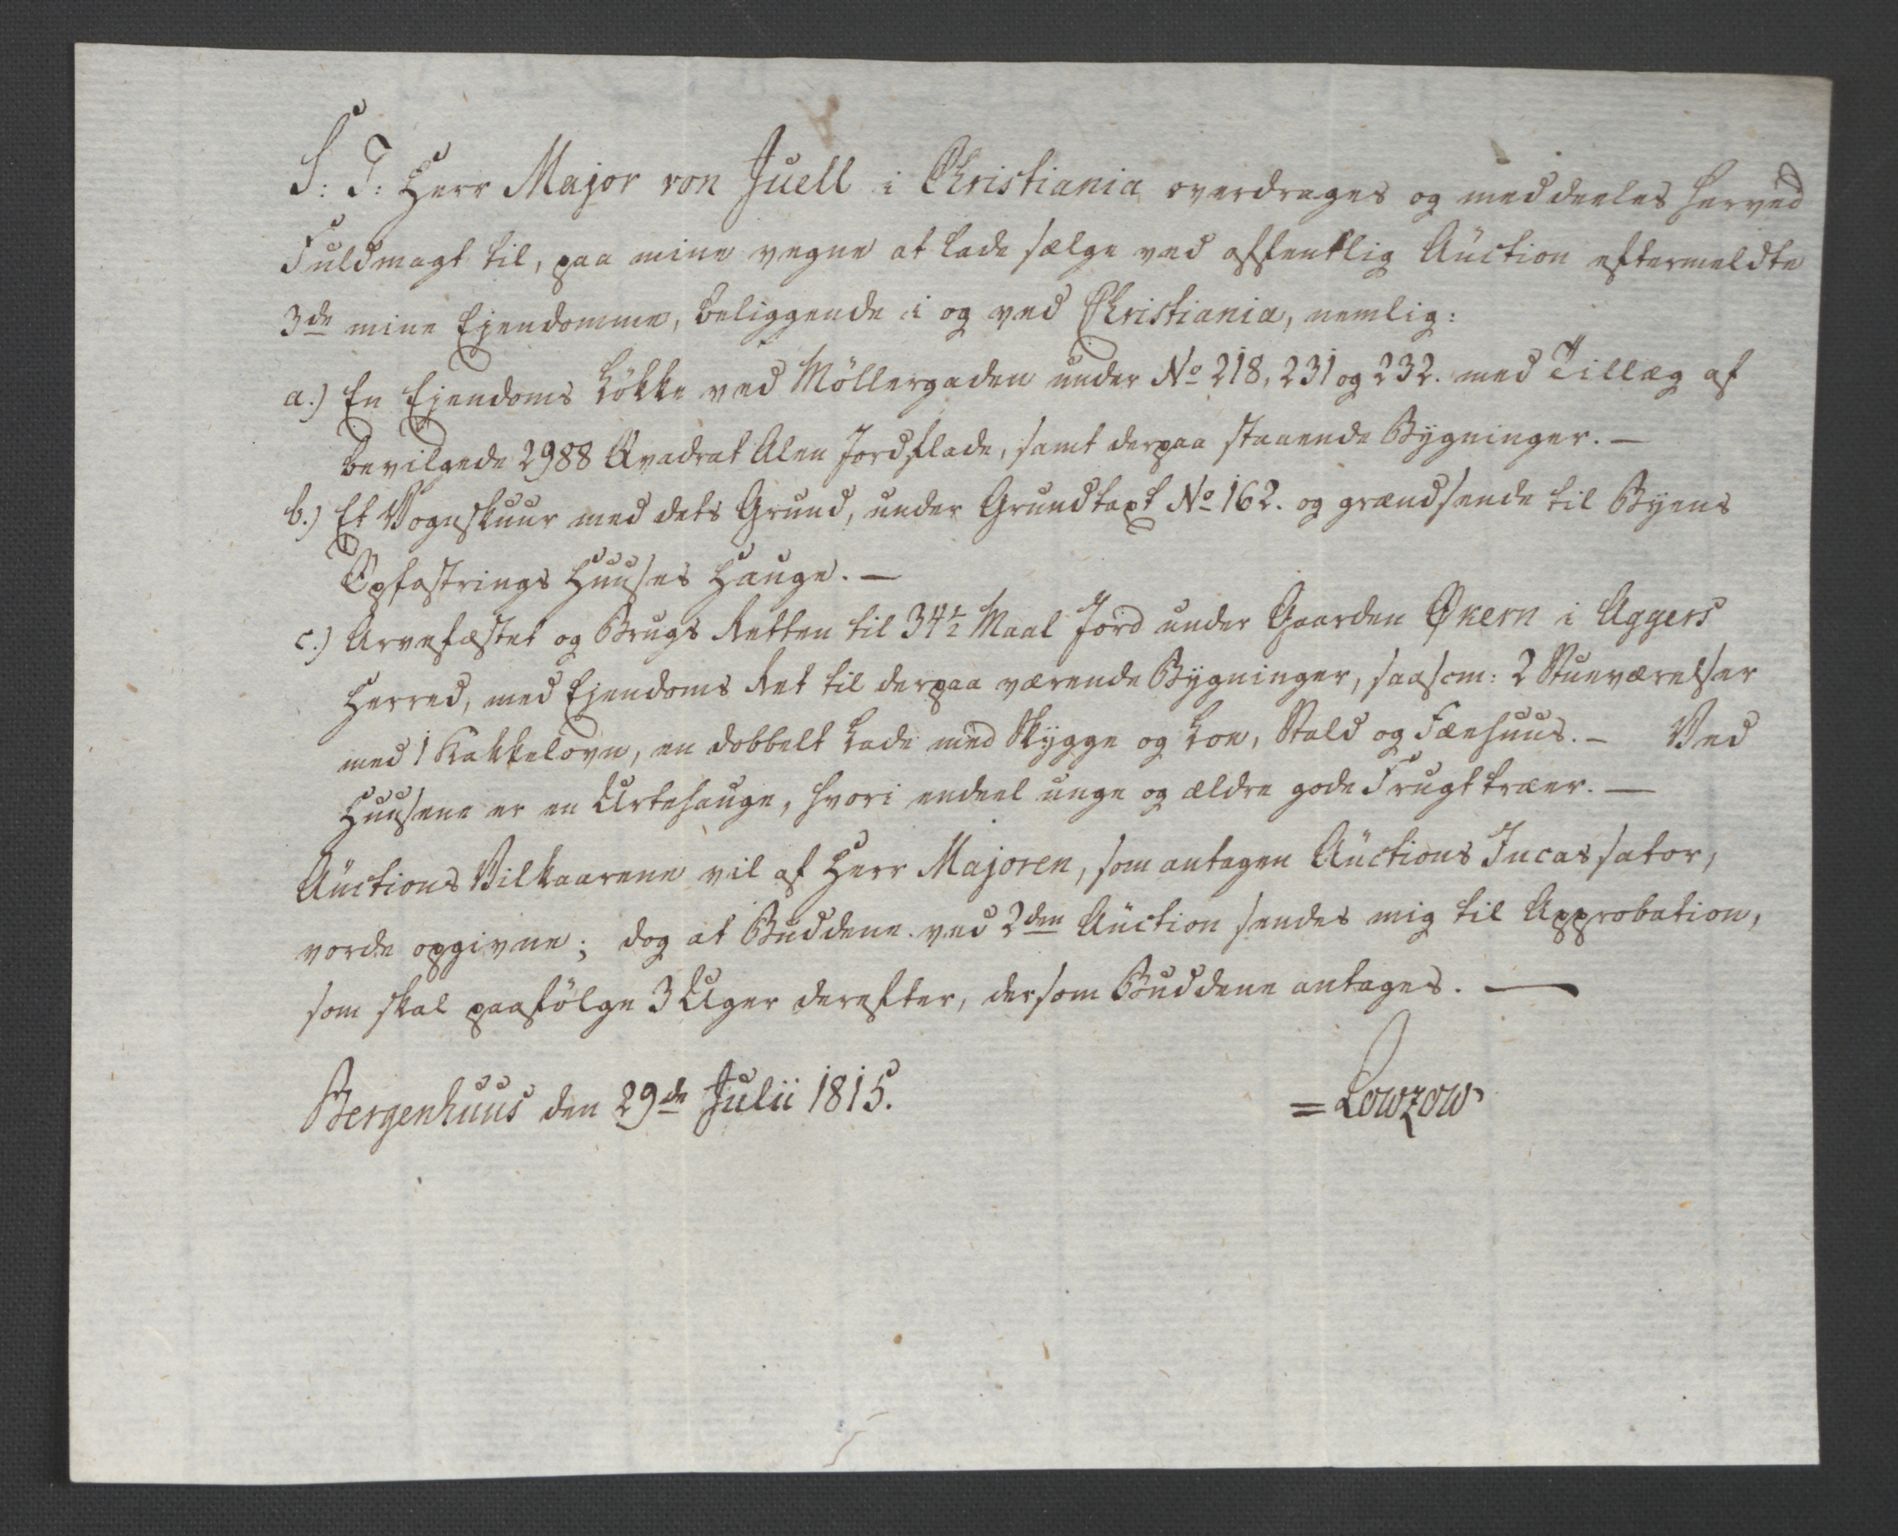 S: T: Herr Major von Juell i Christiania overdrages og meddeeles herved
Fuldmagt til, paa mine vegne at lade sælge ved offentlig Auction eftermeldte
3de mine Ejendomme, beliggende i og ved Christiania, nemlig:
a.) En Ejendoms Løkke ved Møllergaden under No 218, 231 og 232. med Tillæg af
bevilgede 2988 Qvadrat Alen Jordflade, samt derpaa staaende Bygninger. —
b.) Et Vognskuur med dets Grund, under Grundtaxt No 162. og grændsende til Byens
Opfostrings Huuses Hauge. —
c.) Arvefæstet og Brugs Retten til 34½ Maal Jord under Gaarden Økern i Aggers
Herred, med Ejendoms Ret til derpaa værende Bygninger, saasom: 2 Stueværelser
med 1 Kakkelovn, en dobbelt Lade med Skygge og Loe, Stald og Fæehuus. — Ved
Huusene er en Urtehauge, hvori endeel unge og ældre gode Frugttræer. —
Auctions Vilkaarene vil af Herr Majoren, som antagen Auctions Incassator,
vorde opgivne; dog at Buddene ved 2den Auction sendes mig til Approbation,
som skal paafølge 3 Uger derefter, dersom Buddene antages. —
Bergenhuus den 29de Julii 1815. = Lowzow